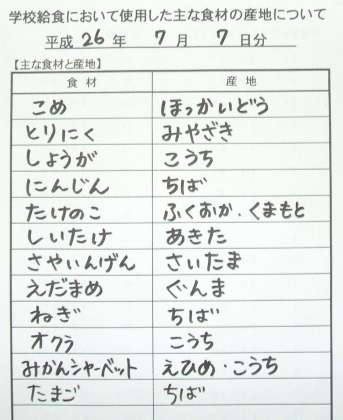 学校給食において使用した主な食材の産地について
平成 26 年 7 月 7 日分
【主な食材と産地】
食材 産地
こめ ほっかいどう
とりにく みやざき
しょうが こうち
にんじん ちば
たけのこ ふくおか・くまもと
しいたけ あきた
さやいんげん さいたま
えだまめ ぐんま
ねぎ ちば
オクラ こうち
みかんシャーベット えひめ・こうち
たまご ちば